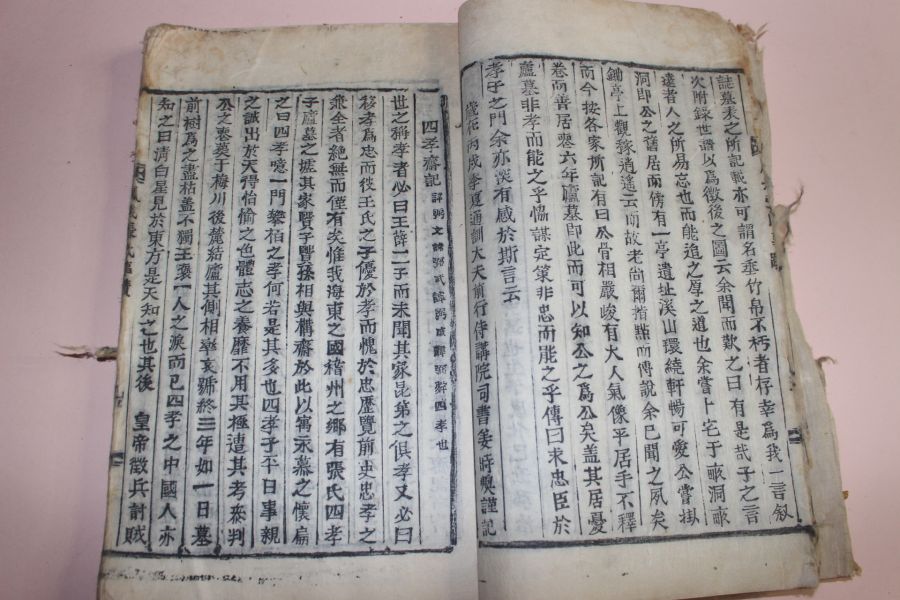 誌墓表之所記載亦可謂名垂竹帛不朽者存幸爲我一言敍
次附錄世譜以爲徵後之圖云余聞而歎之曰有是哉子之言
遠者人之所易忘也而能追之厚之道也余嘗卜宅于畝洞畝
洞即公之舊居而傍有一亭遺址溪山環繞軒暢可愛公嘗掛
鋤亭上觀稼逍遙云而故老尙爾指點而傳說余已聞之夙矣
而今按各家所記有曰公骨相嚴峻有大人氣像平居手不釋
卷而善居喪六年廬墓即此而可以知公之爲公矣盖其居憂
廬墓非孝而能之乎協謀定策非忠而能之乎傳曰求忠臣於
孝子之門余亦深有感於斯言云
歲在丙戌季夏通訓大夫前行侍講院司書姜時 謹記
四孝齋記 諱弼文諱弼武諱弼 諱弼 四孝也
世之稱孝者必曰王薛二子而未聞其家昆弟之俱孝又必曰
移孝爲忠而彼王氏之子優於孝而愧於忠歷覽前史忠孝之
兼全者絶無而僅有矣惟我海東之國稽州之鄕有張氏四孝
子廬墓之墟其家賢子賢孫相與構齋於此以寓永慕之懷扁
之曰四孝噫一門黎柏之孝何若是其多也四孝子平日事親
之誠出於天得怡愉之色體志之養靡不用其極遭其考叅判
公之喪葬于梅川後麓結廬其側相 哀號終三年如一日墓
前樹爲之盡枯盖不獨王裒一人之淚而已四孝之中國人亦
知之曰淸白星見於東方是天知之也其後 皇帝徵兵討賊